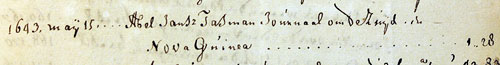 1643. maÿ 15.... Abel Jansz Tasman Journael om de Zuyd. in
Nova Guinea .................. 1..28